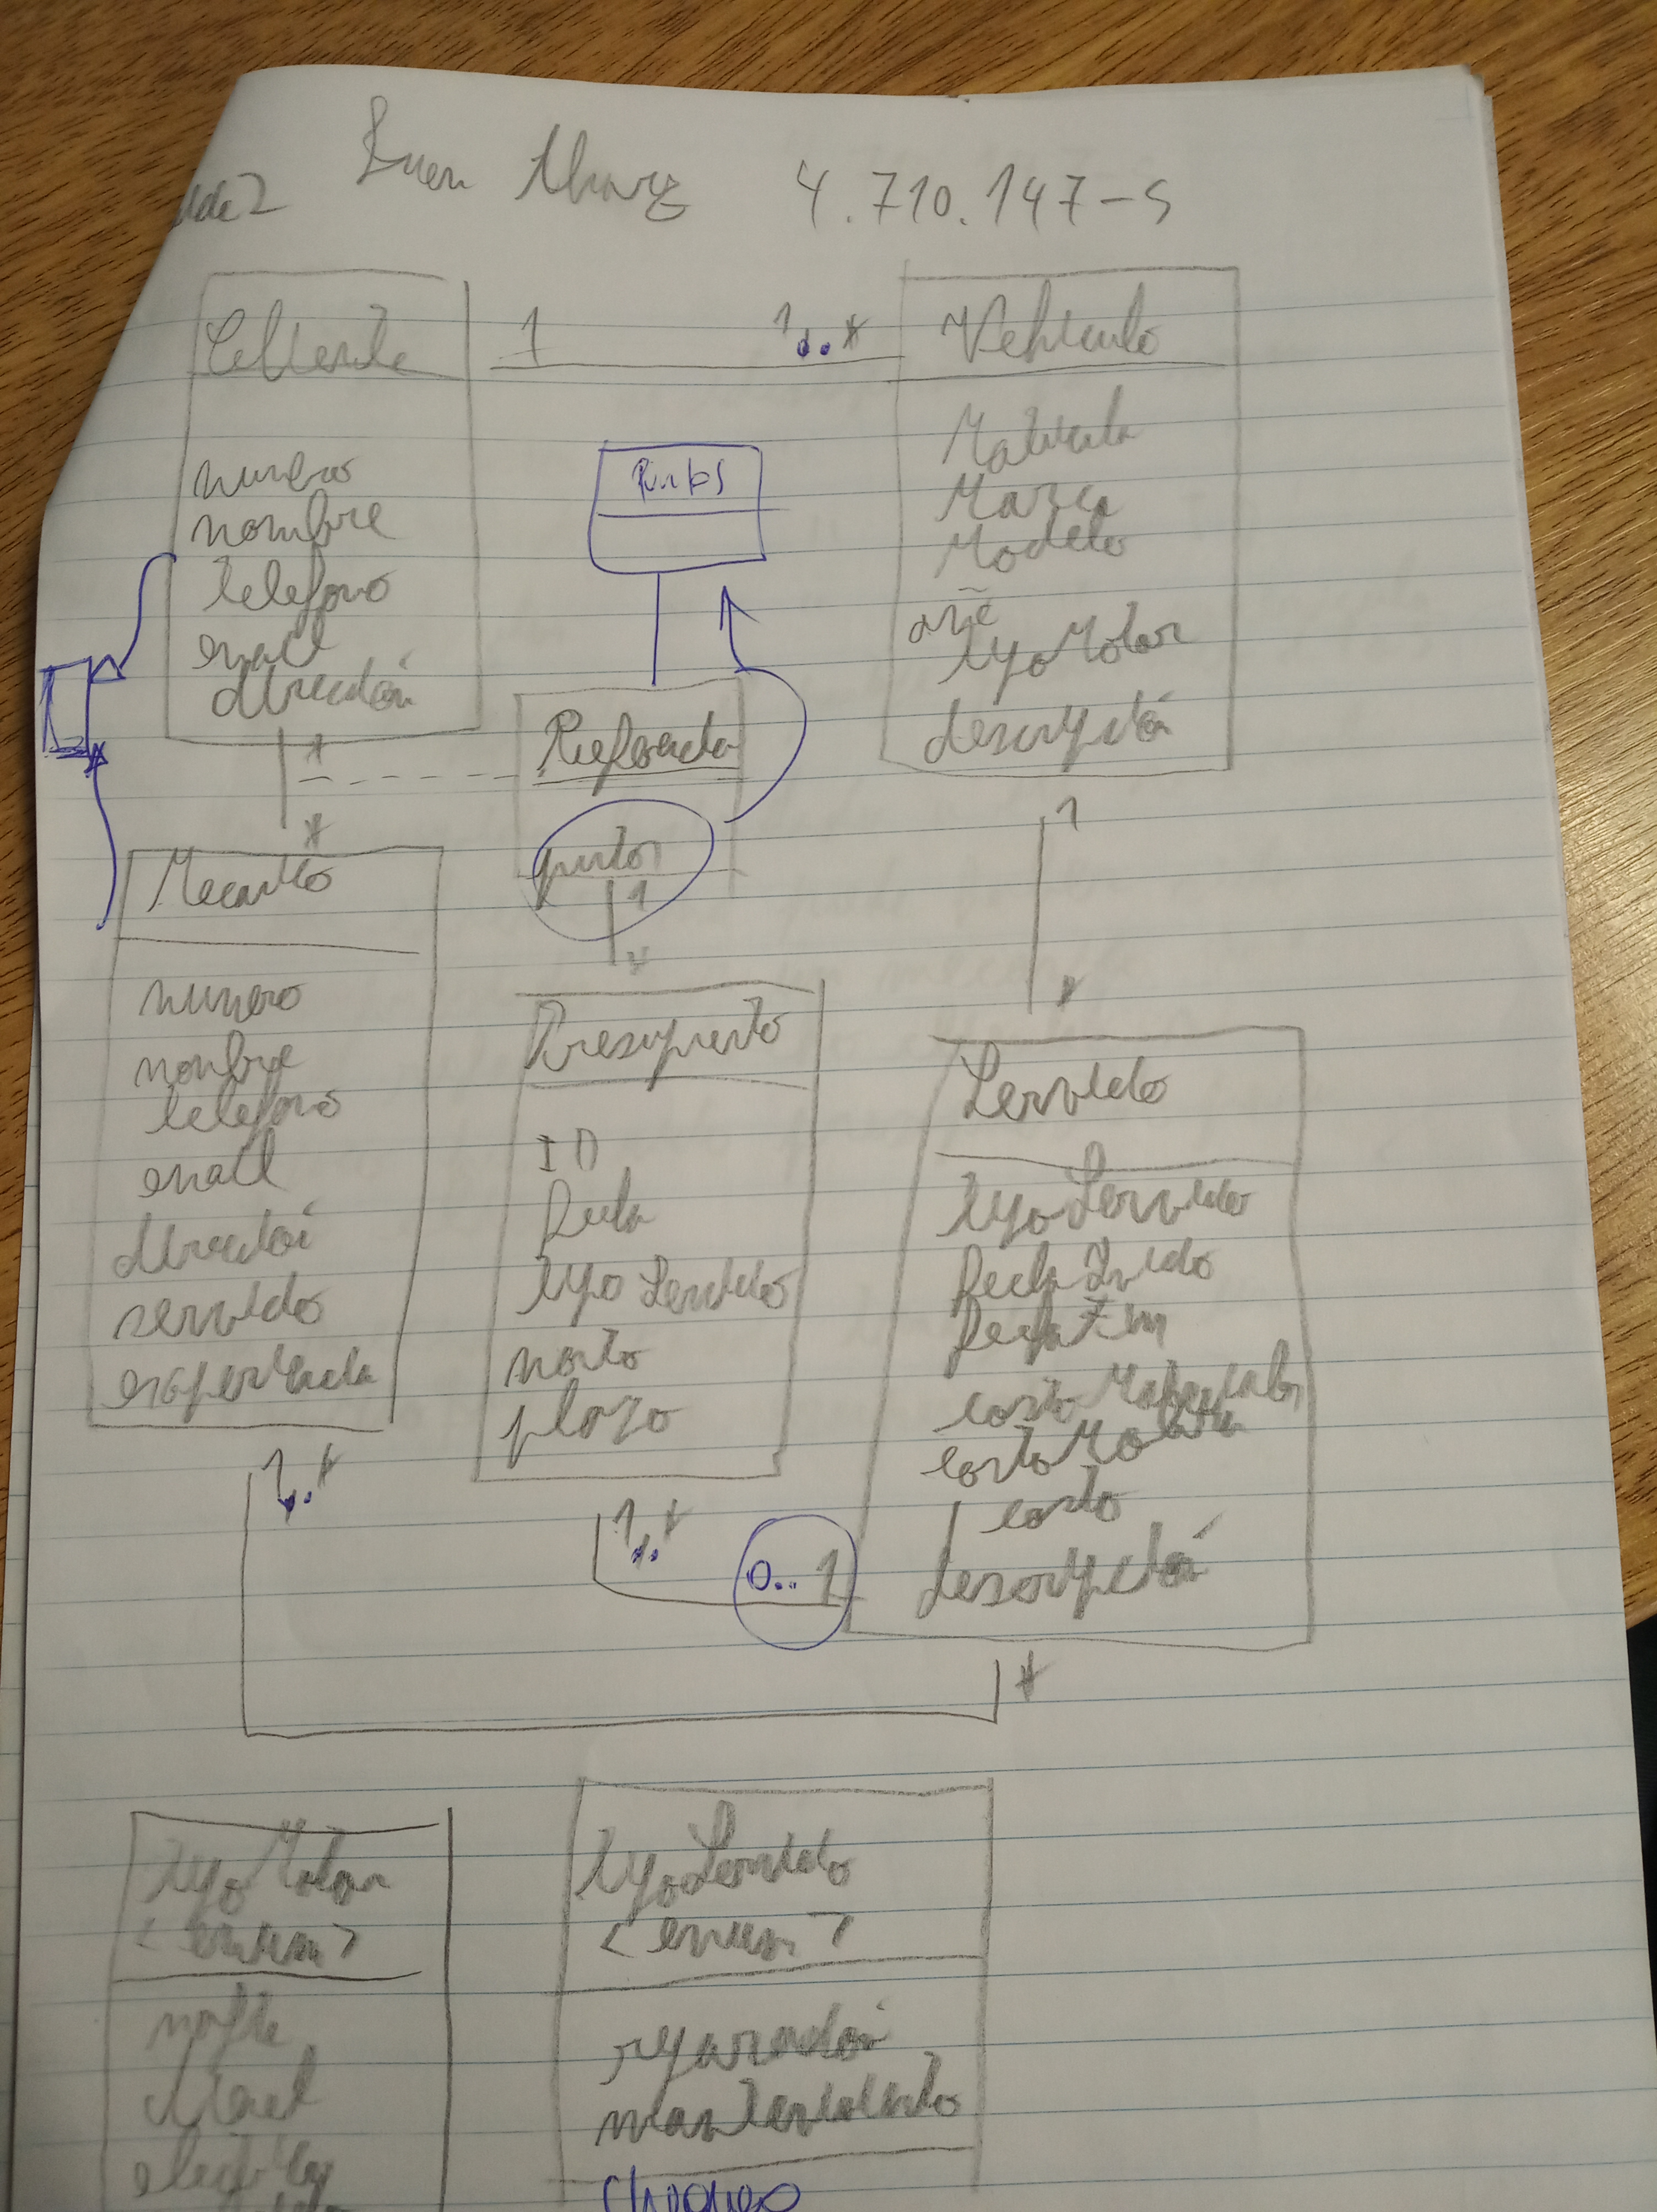 4.710.147-5
Cliente
1
1..*
Vehiculo
numero
nombre
telefono
email
dirección
Puntos
Matricula
Marca
Modelo
año
tipoMotor
descripción
1
*
Preferencia
puntos
1
*
1
*
Mecanico
numero
nombre
telefono
email
dirección
servicio
experiencia
Presupuesto
ID
fecha
tipo Servicio
monto
plazo
Servicio
tipoServicio
fecha Inicio
fecha Fin
costo Materiales
costo
descripción
1..*
1..*
0..1
*
tipo Motor
<enum>
nafta
diesel
tipoServicio
<enum>
reparación
mantenimiento
chequeo